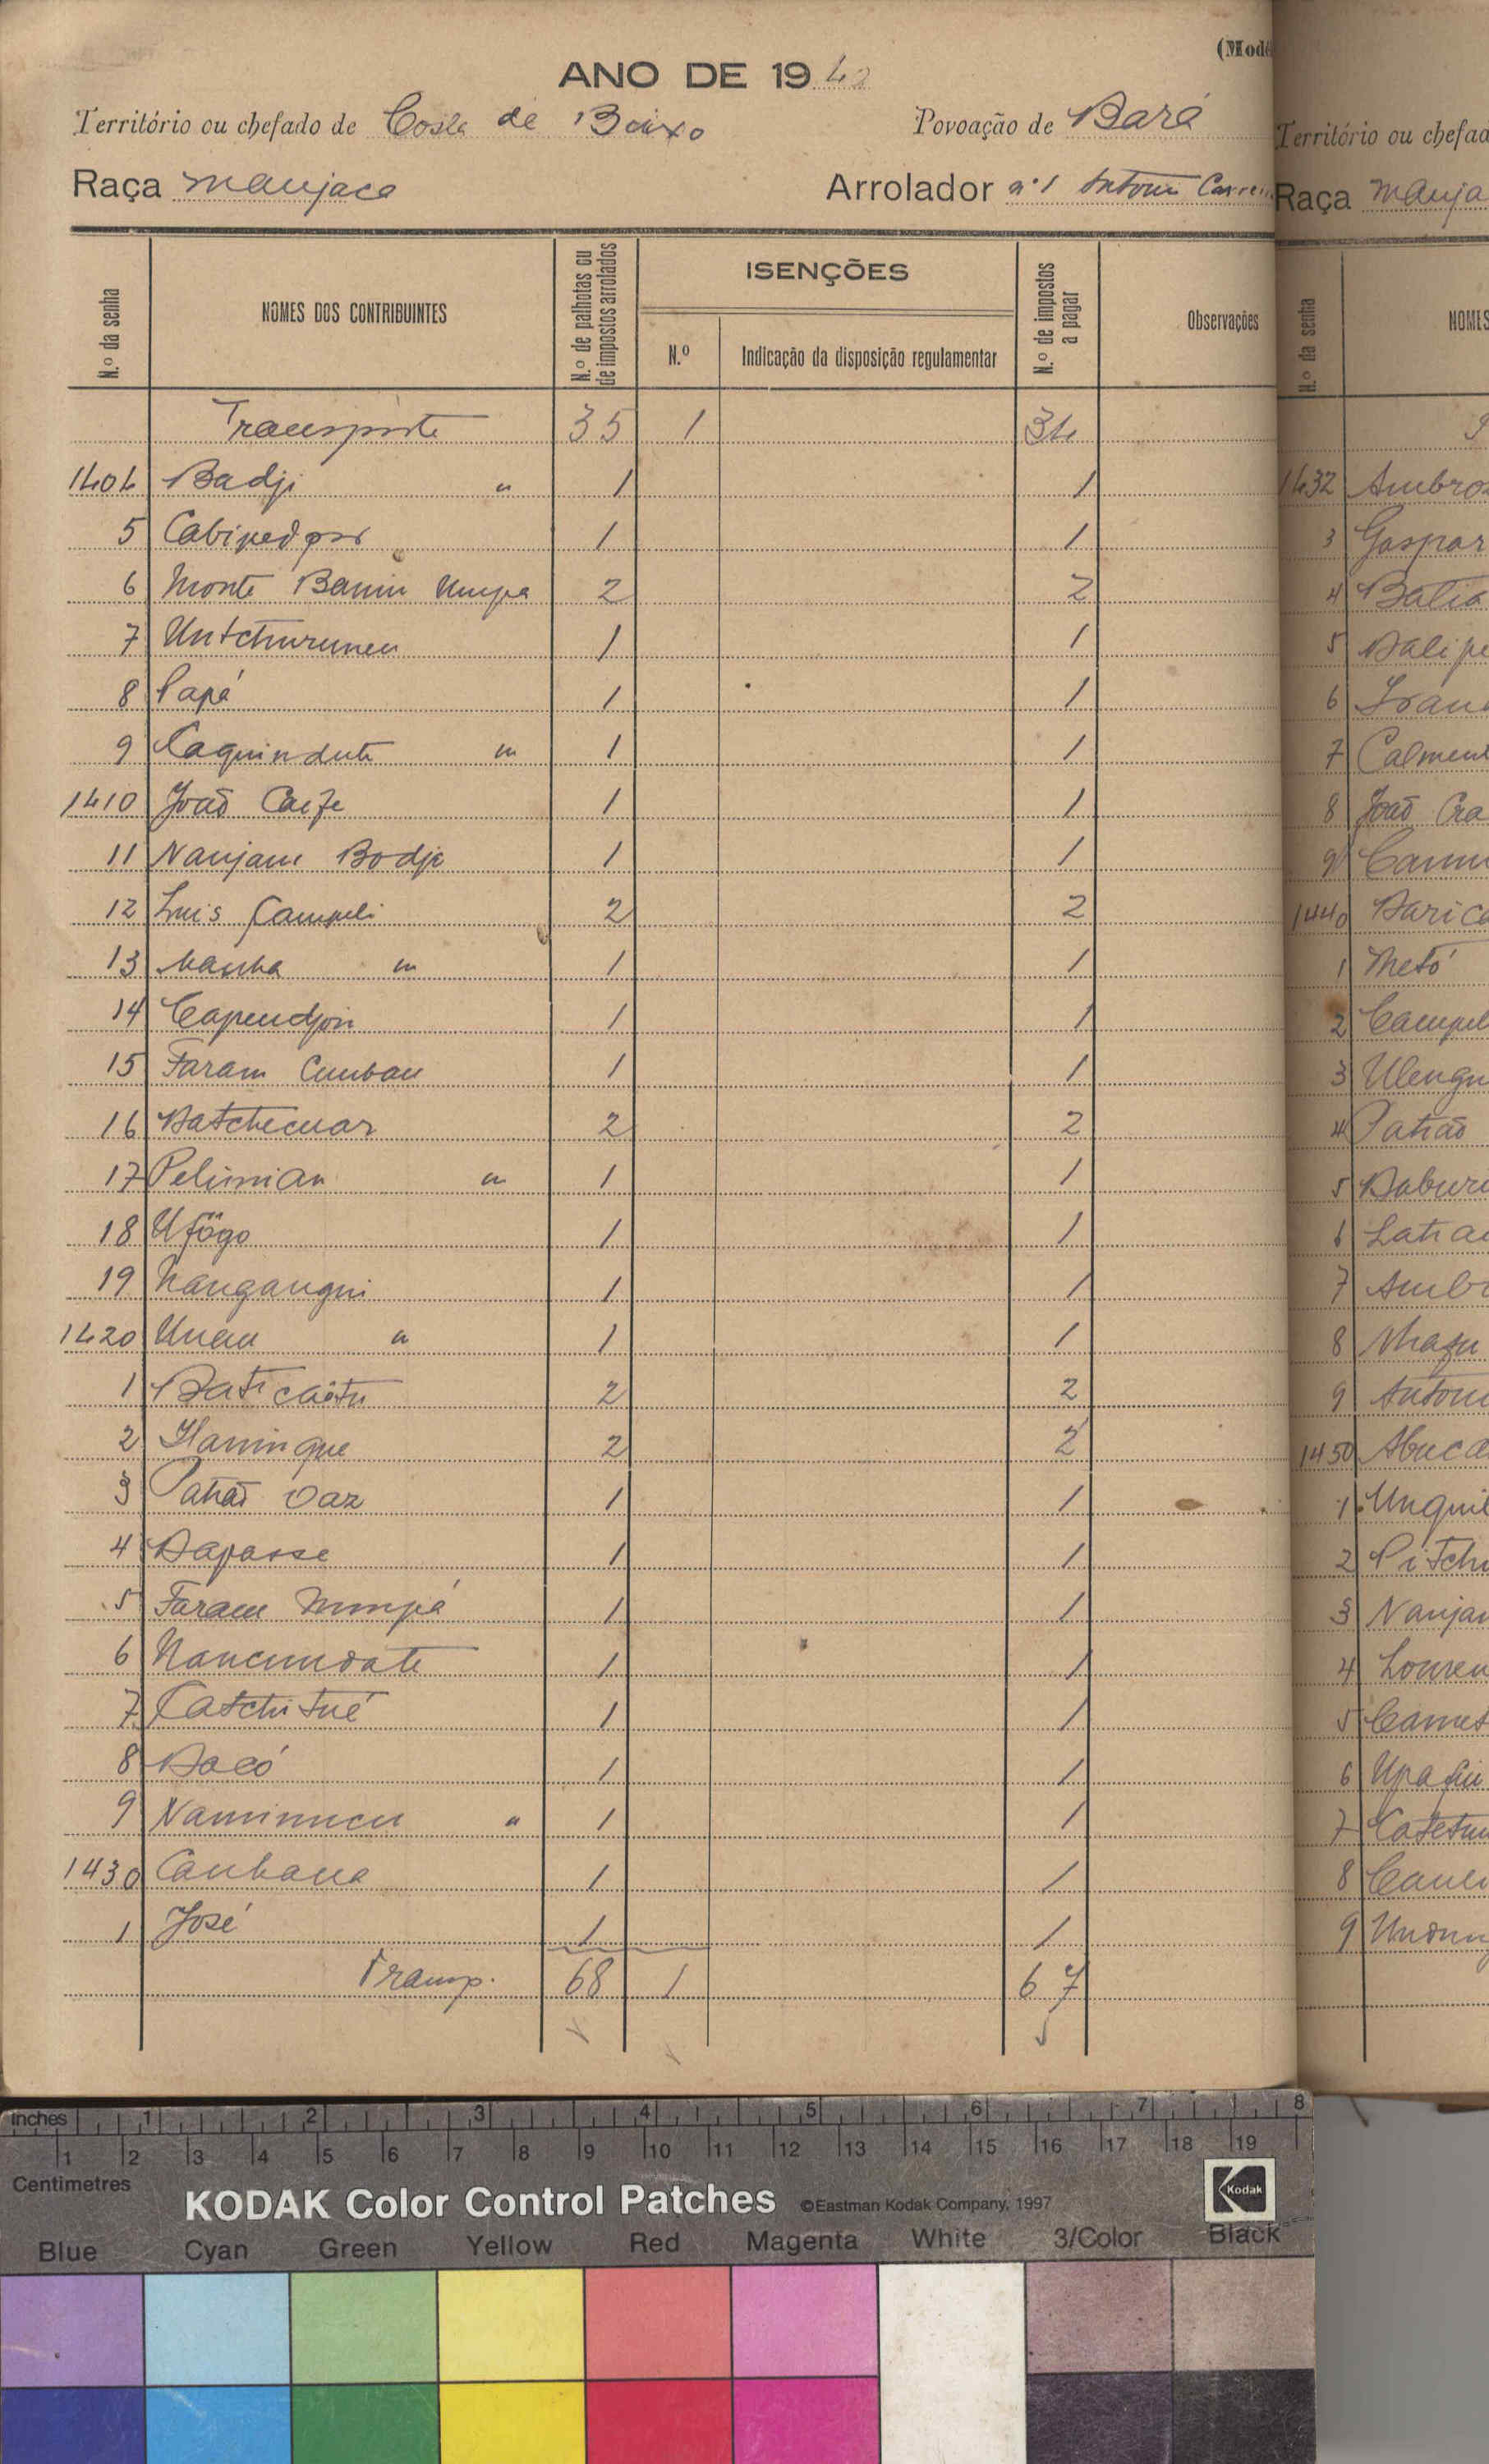 (Mod
ANO DE 1942
Território ou chefado de Costa de Baixo Povoação de Bará
Raça Manjaca Arrolador nº 1 Antoni Carrei
N.º da senha
NOMES DOS CONTRIBUINTES
N.º de palhotas ou de impostos arrolados
ISENÇÕES
N.º
Indicação da disposição regulamentar
N.º de impostos a pagar
Observações
Transporte 35 1 34
1404 Badji " 1 1
5 1 1
6 Monte Banin Umpa 2 2
7 Untchurumen 1 1
8 Papá 1 1
9 Caquindute " 1 1
1410 João Caife 1 1
11 Nanjam Bodje 1 1
12 Luis Campeli 2 2
13 " 1 1
14 Capendjon 1 1
15 Faram Cumbau 1 1
16 Batchecuar 2 2
17 Pelimian " 1 1
18 Ufögo 1 1
19 Nangangui 1 1
1420 Unau " 1 1
1 Baticaitu 2 2
2 2 2
3 Patrão Vaz 1 1
4 Dapasse 1 1
5 Faram Mompá 1 1
6 Nancundate 1 1
7 Catchitué 1 1
8 Bacó 1 1
9 Naminucu " 1 1
1430 Canhana 1 1
1 José 1 1
Transp. 68 1 67
Território ou chefad
Raça Manja
N.º da senha
NOMES
1432 Ambroz
3 Gaspar
4 Batia
5 Balipe
6
7 Calment
8 João Cra
9
1440 Barica
1 Metó
2 Campel
3 Ulengu
4 Patrão
5 Daburi
6 Latra
7 Ambr
8
9 Antoni
1450 Abuca
1 Unquil
2 Pitchi
3 Nanjan
4 Louren
5 Camet
6
7
8
9
inches 1 2 3 4 5 6 7 8
1 2 3 4 5 6 7 8 9 10 11 12 13 14 15 16 17 18 19
Centimetres
KODAK Color Control Patches ©Eastman Kodak Company, 1997 Kodak
Blue Cyan Green Yellow Red Magenta White 3/Color Black